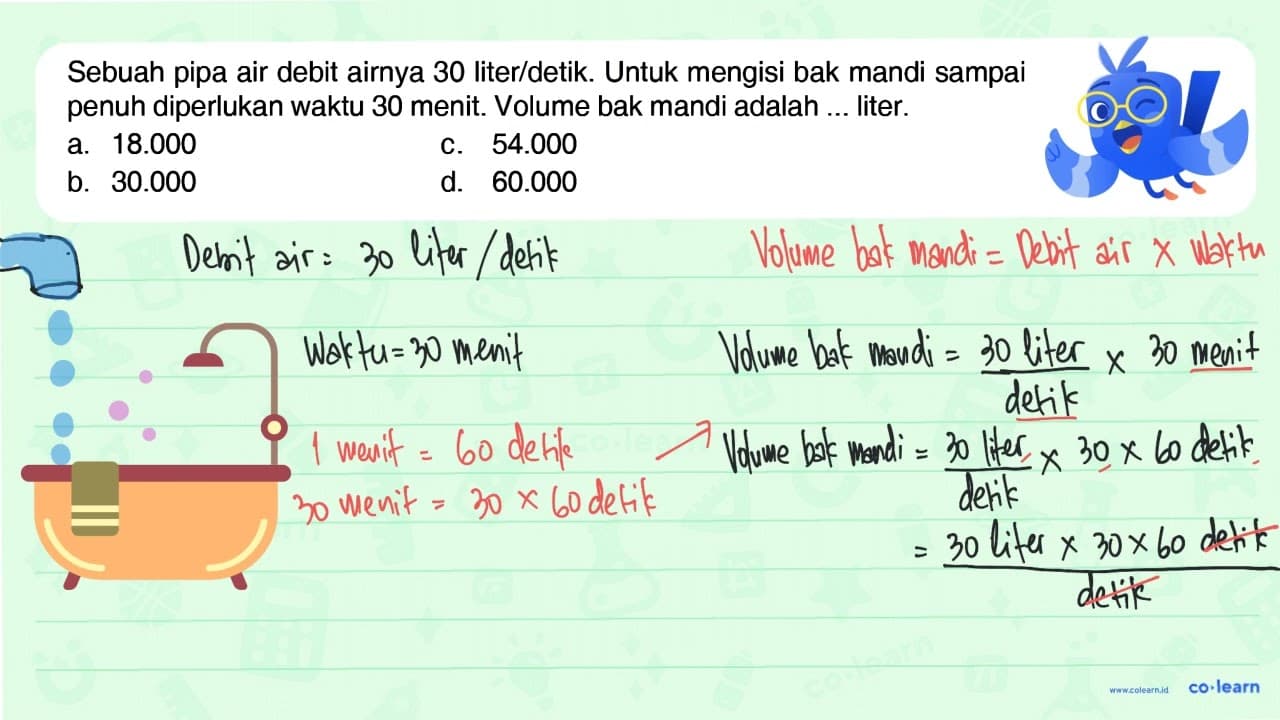 Sebuah pipa air debit airnya 30 liter/detik. Untuk mengisi bak mandi sampai
penuh diperlukan waktu 30 menit. Volume bak mandi adalah ... liter.
a. 18.000 c. 54.000
b. 30.000 d. 60.000
Debit air = 30 liter / detik
Volume bak mandi = Debit air × Waktu
Waktu = 30 menit
Volume bak mandi = 30 liter / detik × 30 menit
1 menit = 60 detik
Volume bak mandi = 30 liter / detik × 30 × 60 detik
30 menit = 30 × 60 detik
= 30 liter × 30 × 60 detik / detik
www.colearn.id co·learn